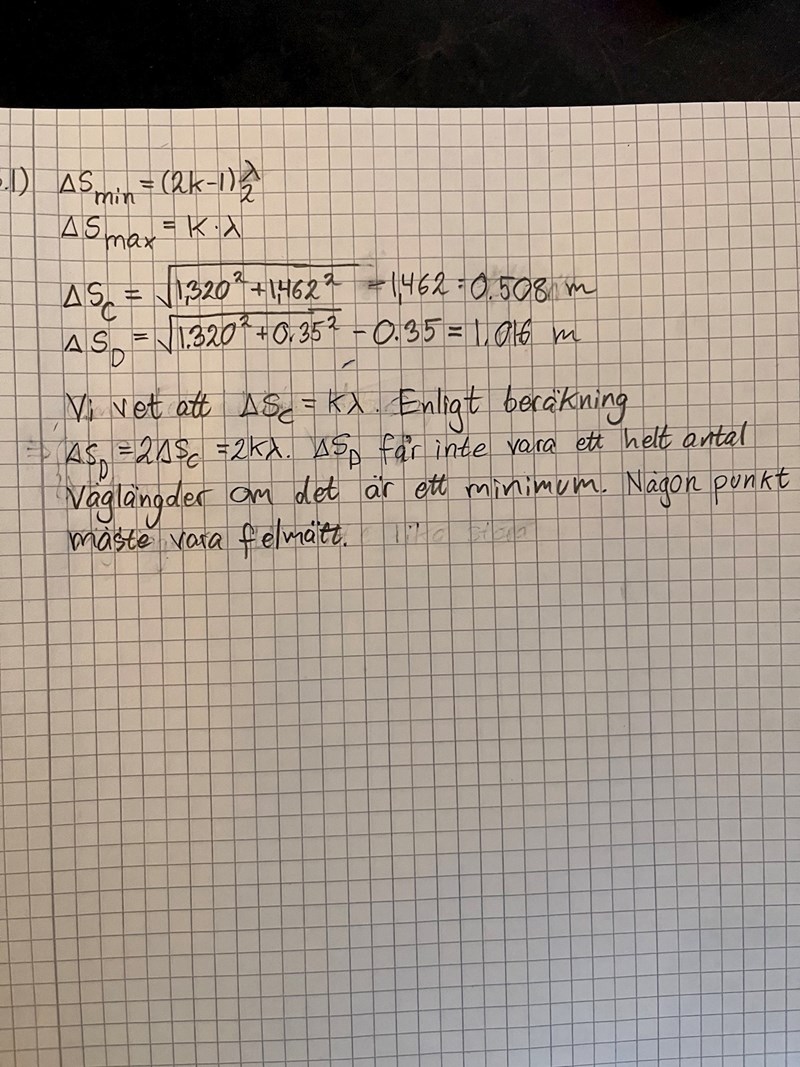 .1) ΔS_min = (2k-1) λ/2
ΔS_max = k · λ
ΔS_C = √(1,320² + 1,462²) - 1,462 = 0.508 m
ΔS_D = √(1.320² + 0.35²) - 0.35 = 1,016 m
Vi vet att ΔS_C = kλ. Enligt beräkning
ΔS_D = 2ΔS_C = 2kλ. ΔS_D får inte vara ett helt antal
Våglängder om det är ett minimum. Någon punkt
måste vara felmätt.